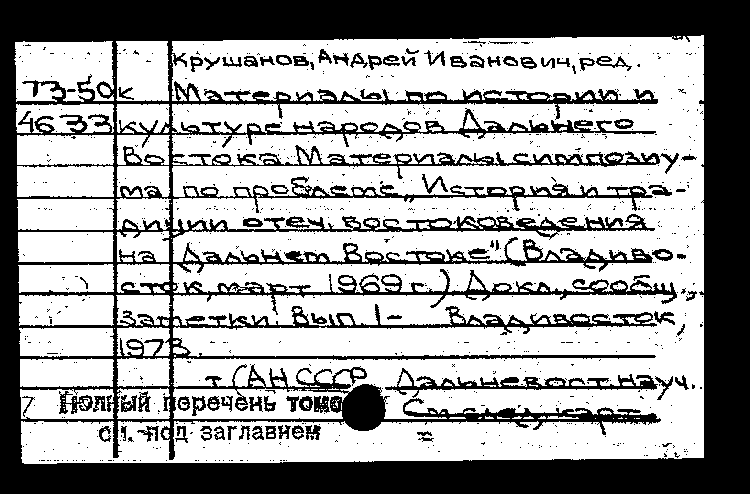 Крушанов, Андрей Иванович, ред.
73-50к Материалы по истории и
4633 культуре народов Дальнего
Востока. Материалы симпозиу-
ма по проблеме „История и тра-
диции отеч. востоковедения
на Дальнем Востоке" (Владиво-
сток, март 1969 г.) Докл., сообщ.,
заметки. Вып. 1- Владивосток,
1973.
т (АН СССР Дальневост. науч.
Полный перечень томо См. след. карт.
см. под заглавием =